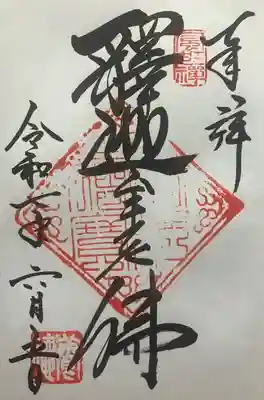 奉拝
釋迦牟尼佛
令和二年六月五日